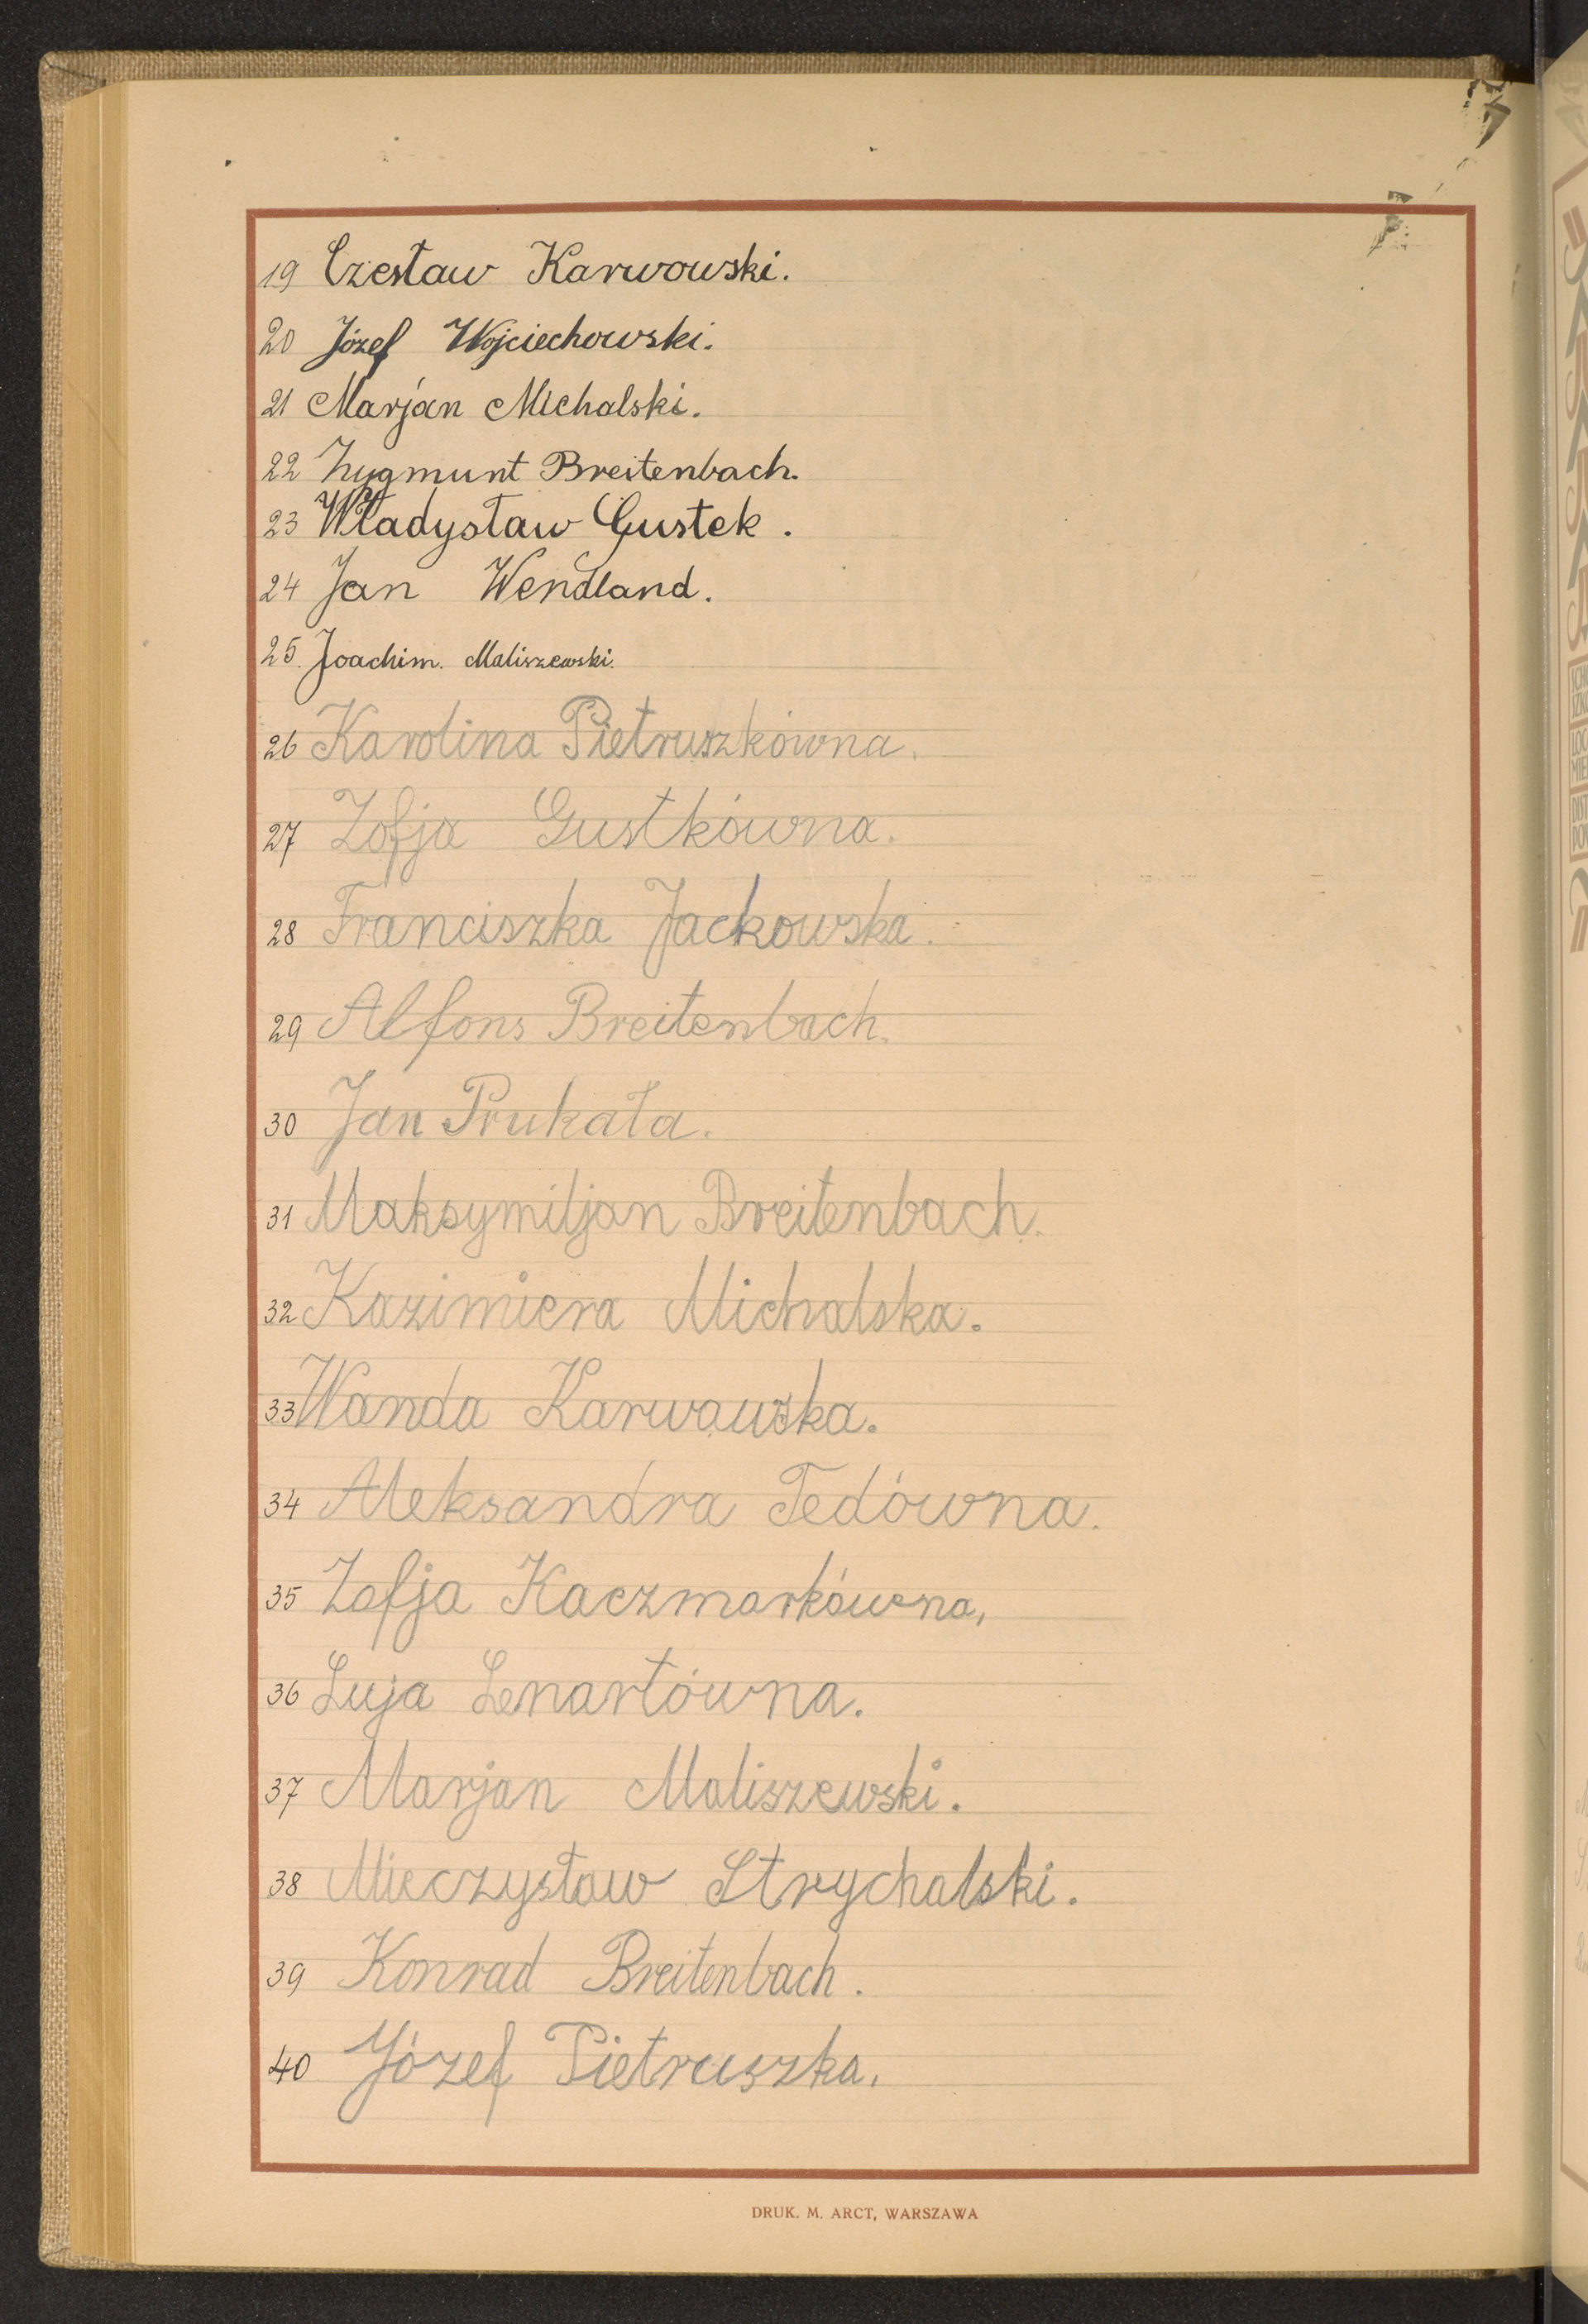 19 Czesław Karwowski.
20 Józef Wojciechowski.
21 Marjan Michalski.
22 Zygmunt Breitenbach.
23 Władysław Gustek.
24 Jan Wendland.
25. Joachim. Maliszewski.
26 Karolina Pietruszkówna.
27 Zofja Gustkówna.
28 Franciszka Jackowska.
29 Alfons Breitenbach.
30 Jan Prukała.
31 Maksymiljan Breitenbach.
32 Kazimiera Michalska.
33 Wanda Karwowska.
34 Aleksandra Tedówna.
35 Zofja Kaczmarkówna,
36 Łuja Lenartówna.
37 Marjan Maliszewski.
38 Mieczysław Strychalski.
39 Konrad Breitenbach.
40 Józef Pietruszka.
DRUK. M. ARCT, WARSZAWA